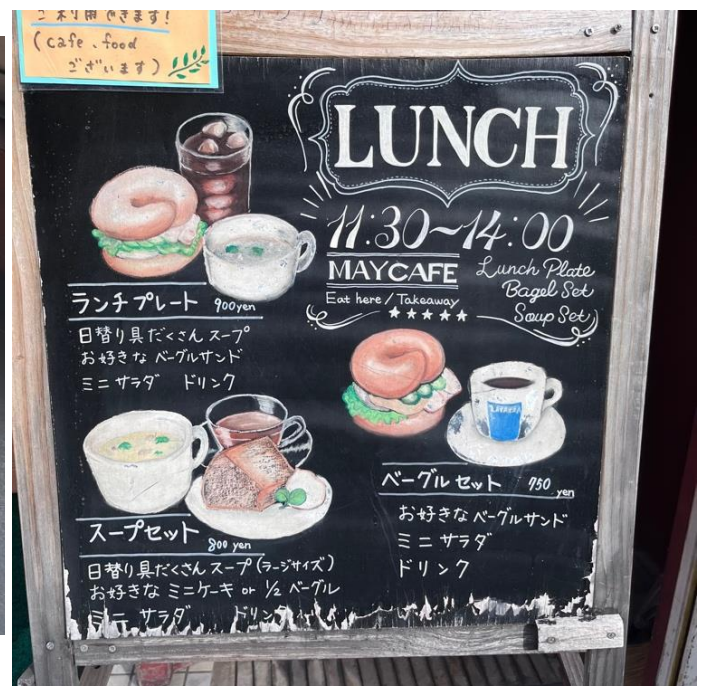 ご利用できます!
(cafe、food
ございます)
LUNCH
11:30~14:00
MAYCAFE
Eat here / Takeaway
Lunch Plate
Bagel Set
Soup Set
ランチプレート 900yen
日替り具だくさんスープ
お好きなベーグルサンド
ミニサラダ ドリンク
LAVAZZA
ベーグルセット 750 yen
お好きなベーグルサンド
ミニサラダ
ドリンク
スープセット 800 yen
日替り具だくさんスープ(ラージサイズ)
お好きなミニケーキ or 1/2 ベーグル
ミニサラダ ドリンク